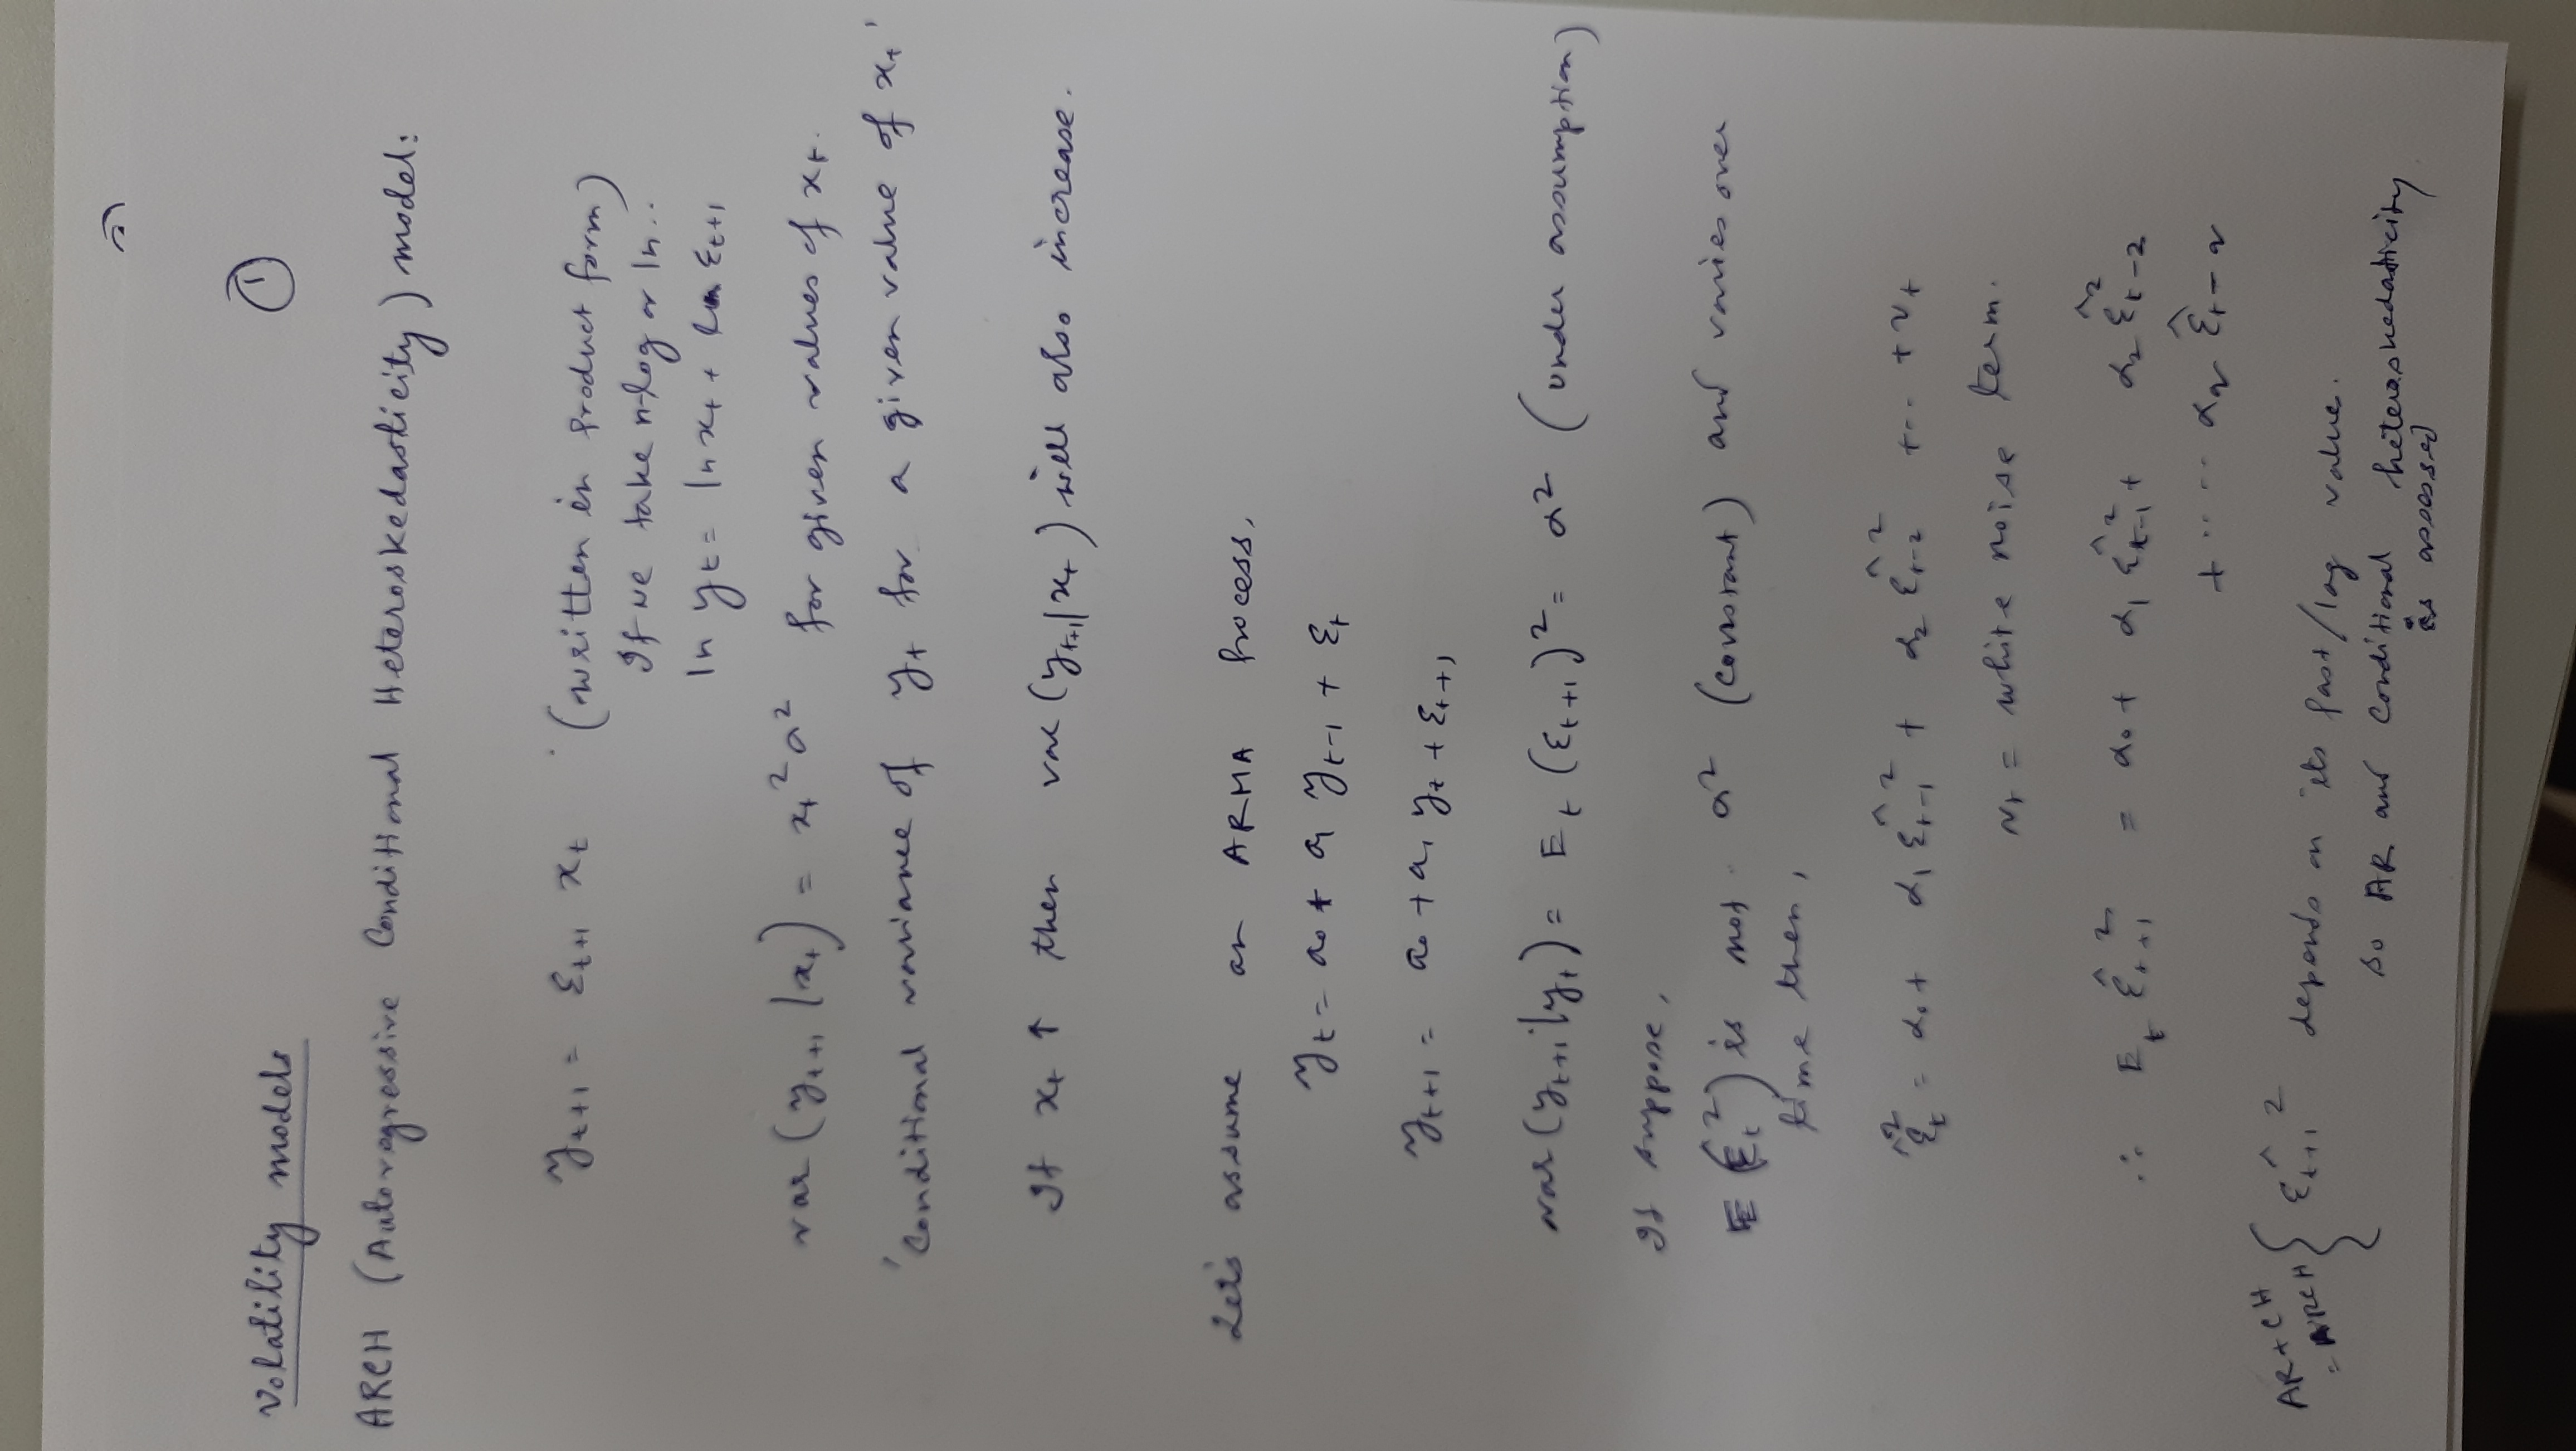 ①
Volatility models
ARCH (Autoregressive Conditional Heteroskedasticity) model:
y_{t+1} = ε_{t+1} x_t (written in product form)
If we take n-log or ln..
ln y_t = ln x_t + ln ε_{t+1}
var (y_{t+1} | x_t) = x_t² σ² for given values of x_t.
'Conditional variance of y_t for a given value of x_t'
If x_t ↑ then var (y_{t+1} | x_t) will also increase.
Let's assume an ARMA process,
y_t = a₀ + a₁ y_{t-1} + ε_t
y_{t+1} = a₀ + a₁ y_t + ε_{t+1}
var (y_{t+1} | y_t) = E_t (ε_{t+1})² = σ² (under assumption)
If suppose,
E (ε_t²) is not σ² (constant) and varies over
time then,
ε̂_t² = α₀ + α₁ ε̂_{t-1}² + α₂ ε̂_{t-2}² + ... + v_t
v_t = white noise term.
∴ E_t ε̂_{t+1}² = α₀ + α₁ ε̂_{t-1}² + α₂ ε̂_{t-2}²
+ ..... α_q ε̂_{t-q}
AR + CH
= ARCH { ε̂_{t+1}² depends on its past/lag values.
so AR and conditional heteroskedasticity
is assessed